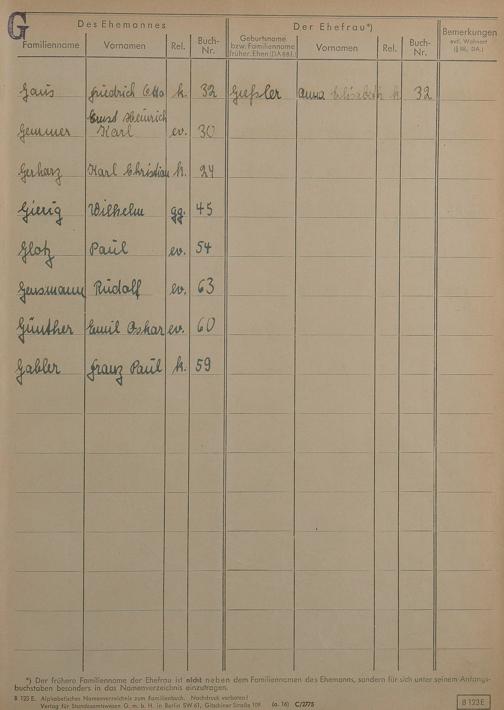 G
Des Ehemannes Der Ehefrau*) Bemerkungen
Familienname Vornamen Rel. Buch-Nr. Geburtsname bzw. Familienname früher. Ehen (DA §§) Vornamen Rel. Buch-Nr. evtl. Wohnort (§ DA.)
Gaus Friedrich Otto k. 32 Gießler Anna Elisabeth k 32
Ernst Heinrich
Gemmer Karl ev. 30
Gerharz Karl Christian k. 24
Gierig Wilhelm gg. 45
Glotz Paul ev. 54
Gensmann Rudolf ev. 63
Günther Emil Oskar ev. 60
Gabler Franz Paul k. 59
*) Der frühere Familienname der Ehefrau ist nicht neben dem Familiennamen des Ehemanns, sondern für sich unter seinem Anfangs-
buchstaben besonders in das Namenverzeichnis einzutragen.
B 123 E. Alphabetisches Namenverzeichnis zum Familienbuch. Nachdruck verboten!
Verlag für Standesamtswesen G. m. b. H. in Berlin SW 61, Gitschiner Straße 109. (a. 16) C/2775
B 123 E